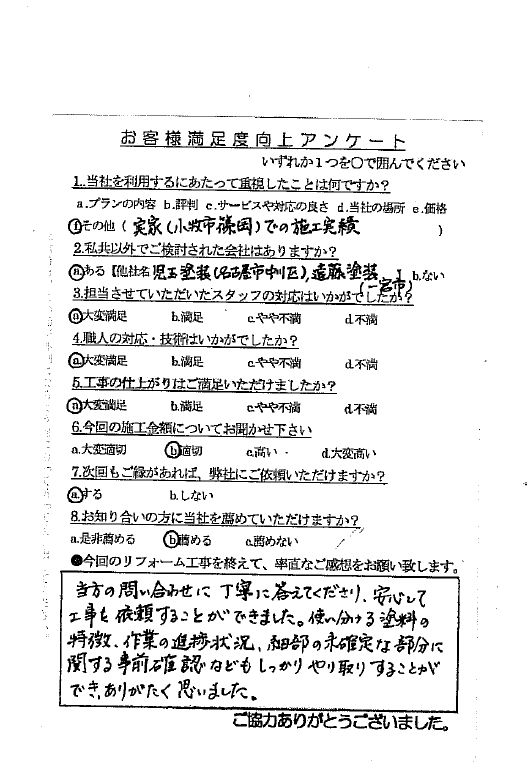 お客様満足度向上アンケート
いずれか1つを○で囲んでください
1.当社を利用するにあたって重視したことは何ですか?
a.プランの内容 b.評判 c.サービスや対応の良さ d.当社の場所 e.価格
f.その他 ( 実家(小牧市篠岡)での施工実績 )
2.私共以外でご検討された会社はありますか?
a.ある【他社名 児玉塗装(名古屋市中川区), 遠藤塗装 】 b.ない
(一宮市)
3.担当させていただいたスタッフの対応はいかがでしたか?
a.大変満足 b.満足 c.やや不満 d.不満
4.職人の対応・技術はいかがでしたか?
a.大変満足 b.満足 c.やや不満 d.不満
5.工事の仕上がりはご満足いただけましたか?
a.大変満足 b.満足 c.やや不満 d.不満
6.今回の施工金額についてお聞かせ下さい
a.大変適切 b.適切 c.高い d.大変高い
7.次回もご縁があれば、弊社にご依頼いただけますか?
a.する b.しない
8.お知り合いの方に当社を薦めていただけますか?
a.是非薦める b.薦める c.薦めない
●今回のリフォーム工事を終えて、率直なご感想をお願い致します。
当方の問い合わせに丁寧に答えてくださり、安心して
工事を依頼することができました。使い分ける塗料の
特徴、作業の進捗状況、細部の未確定な部分に
関する事前確認などもしっかりやり取りすることが
でき、ありがたく思いました。
ご協力ありがとうございました。